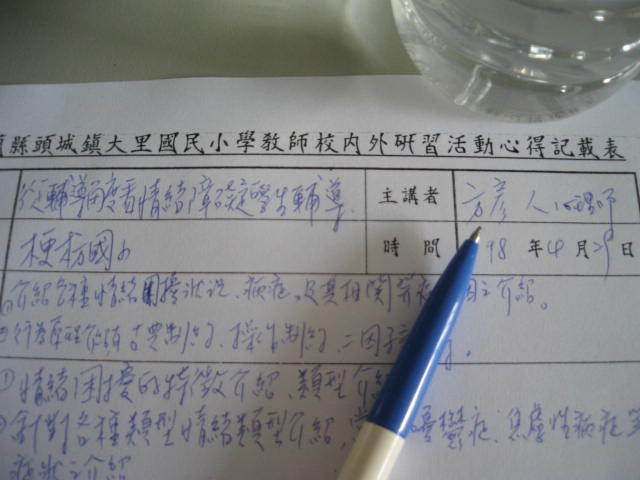 縣頭城鎮大里國民小學教師校內外研習活動心得記載表
從輔導角度看情緒障礙學生輔導 主講者 方彥人心理師
梗枋國小 時間 98 年 4 月 29 日
介紹各種情緒困擾狀況、病症、及其相關 介紹。
②行為原理 古典制約、操作制約、二因子
①情緒困擾的特徵介紹、類型介
②針對各種類型情緒類型介紹, 憂鬱症、焦慮性病症
病狀之介紹